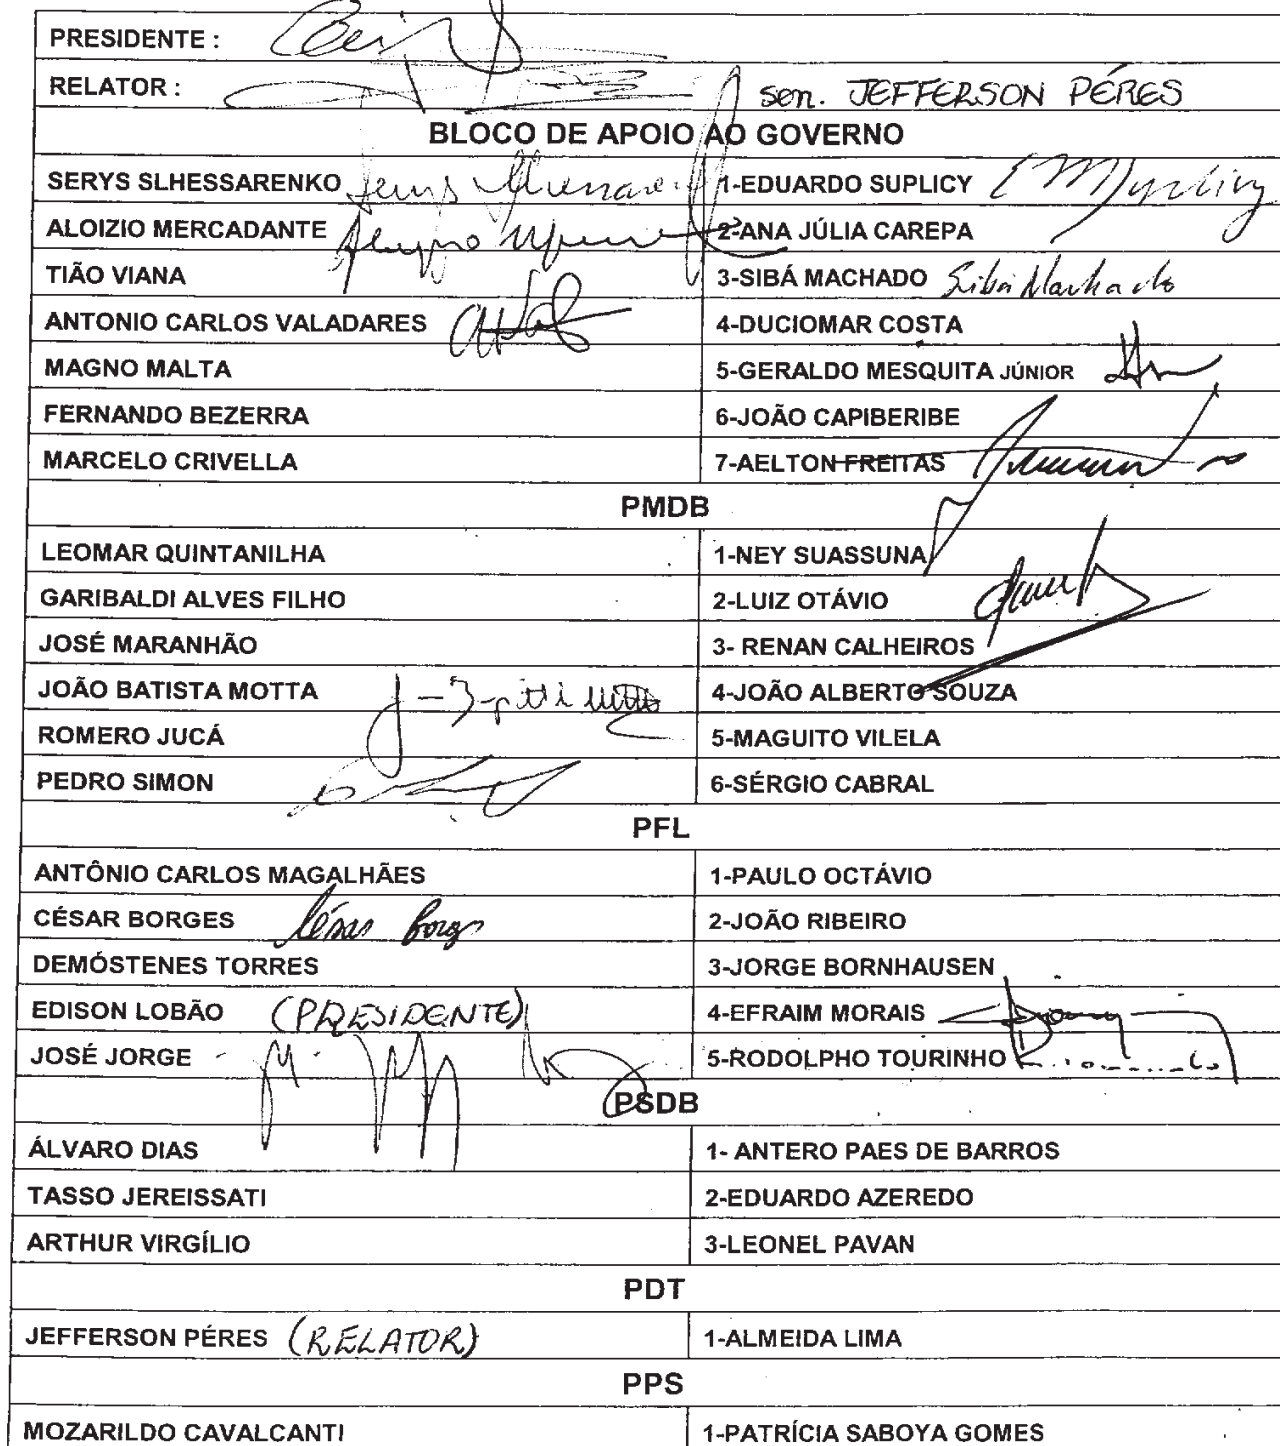 PRESIDENTE :
RELATOR : sen. JEFFERSON PÉRES
BLOCO DE APOIO AO GOVERNO
SERYS SLHESSARENKO 1-EDUARDO SUPLICY
ALOIZIO MERCADANTE 2-ANA JÚLIA CAREPA
TIÃO VIANA 3-SIBÁ MACHADO Sibá Machado
ANTONIO CARLOS VALADARES 4-DUCIOMAR COSTA
MAGNO MALTA 5-GERALDO MESQUITA JÚNIOR
FERNANDO BEZERRA 6-JOÃO CAPIBERIBE
MARCELO CRIVELLA 7-AELTON FREITAS
PMDB
LEOMAR QUINTANILHA 1-NEY SUASSUNA
GARIBALDI ALVES FILHO 2-LUIZ OTÁVIO
JOSÉ MARANHÃO 3- RENAN CALHEIROS
JOÃO BATISTA MOTTA 4-JOÃO ALBERTO SOUZA
ROMERO JUCÁ 5-MAGUITO VILELA
PEDRO SIMON 6-SÉRGIO CABRAL
PFL
ANTÔNIO CARLOS MAGALHÃES 1-PAULO OCTÁVIO
CÉSAR BORGES César Borges 2-JOÃO RIBEIRO
DEMÓSTENES TORRES 3-JORGE BORNHAUSEN
EDISON LOBÃO (PRESIDENTE) 4-EFRAIM MORAIS
JOSÉ JORGE 5-RODOLPHO TOURINHO
PSDB
ÁLVARO DIAS 1- ANTERO PAES DE BARROS
TASSO JEREISSATI 2-EDUARDO AZEREDO
ARTHUR VIRGÍLIO 3-LEONEL PAVAN
PDT
JEFFERSON PÉRES (RELATOR) 1-ALMEIDA LIMA
PPS
MOZARILDO CAVALCANTI 1-PATRÍCIA SABOYA GOMES